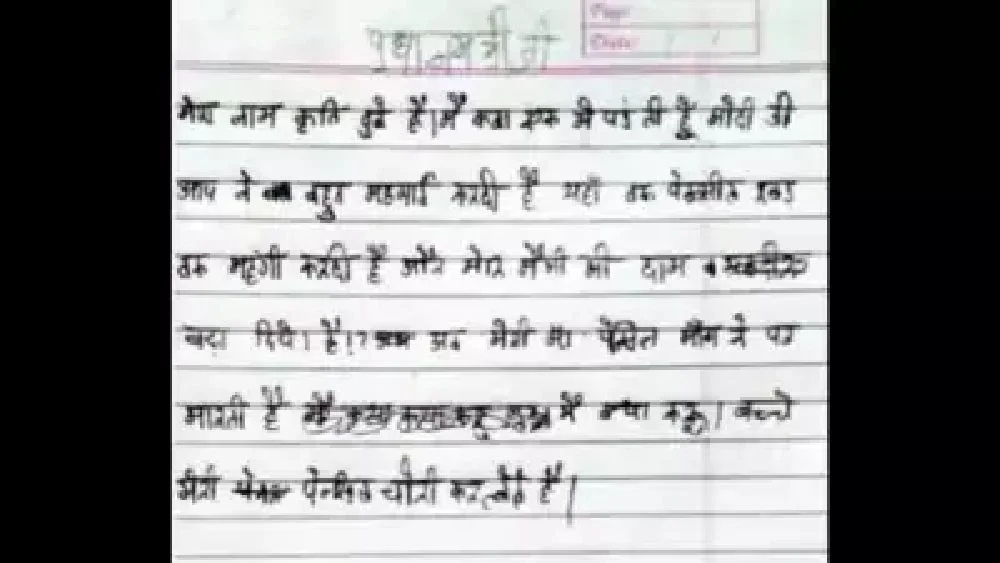 Page
Date / /
प्रधानमंत्री जी
मेरा नाम कृति दुबे है। मैं कक्षा एक में पढ़ती हूँ मोदी जी
आप ने बहुत महगाई करदी है यहाँ तक पेनसील रबड़
तक महंगी करदी है और मेरी मैगी की दाम
बढ़ा दिये। है।? अब मेरी माँ पेन्सिल मांगने पर
मारती है मैं क्या करू। बच्चे
मेरी पेन्सिल चोरी करलेते है।